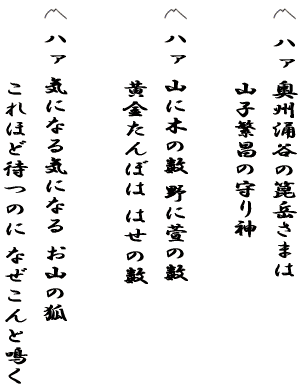 〽ハァ 奥州涌谷の箆岳さまは
山子繁昌の守り神
〽ハァ 山に木の数 野に萱の数
黄金たんぼは はせの数
〽ハァ 気になる気になる お山の狐
これほど待つのに なぜこんと鳴く